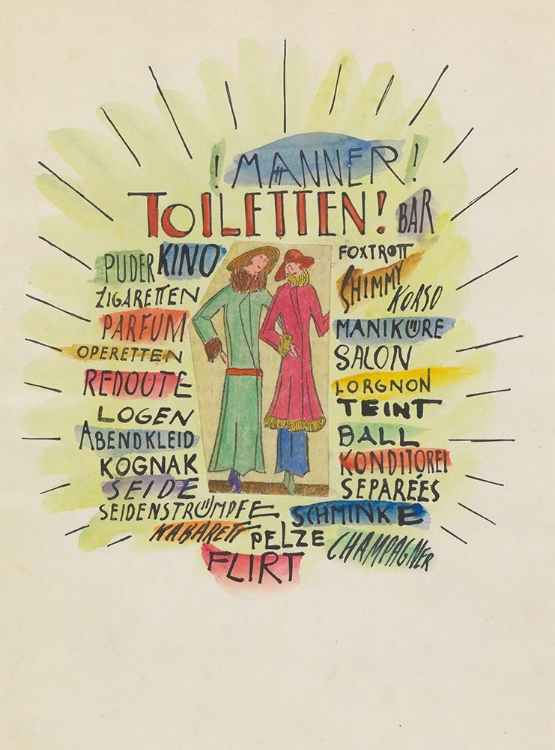 ! MÄNNER!
TOILETTEN! BAR
PUDER KINO
ZIGARETTEN
PARFUM
OPERETTEN
REDOUTE
LOGEN
ABENDKLEID
KOGNAK
SEIDE
SEIDENSTRÜMPFE
KABARETT
PELZE
FLIRT
FOXTROTT
SHIMMY
KORSO
MANIKÜRE
SALON
LORGNON
TEINT
BALL
KONDITOREI
SEPARÉES
SCHMINKE
CHAMPAGNER